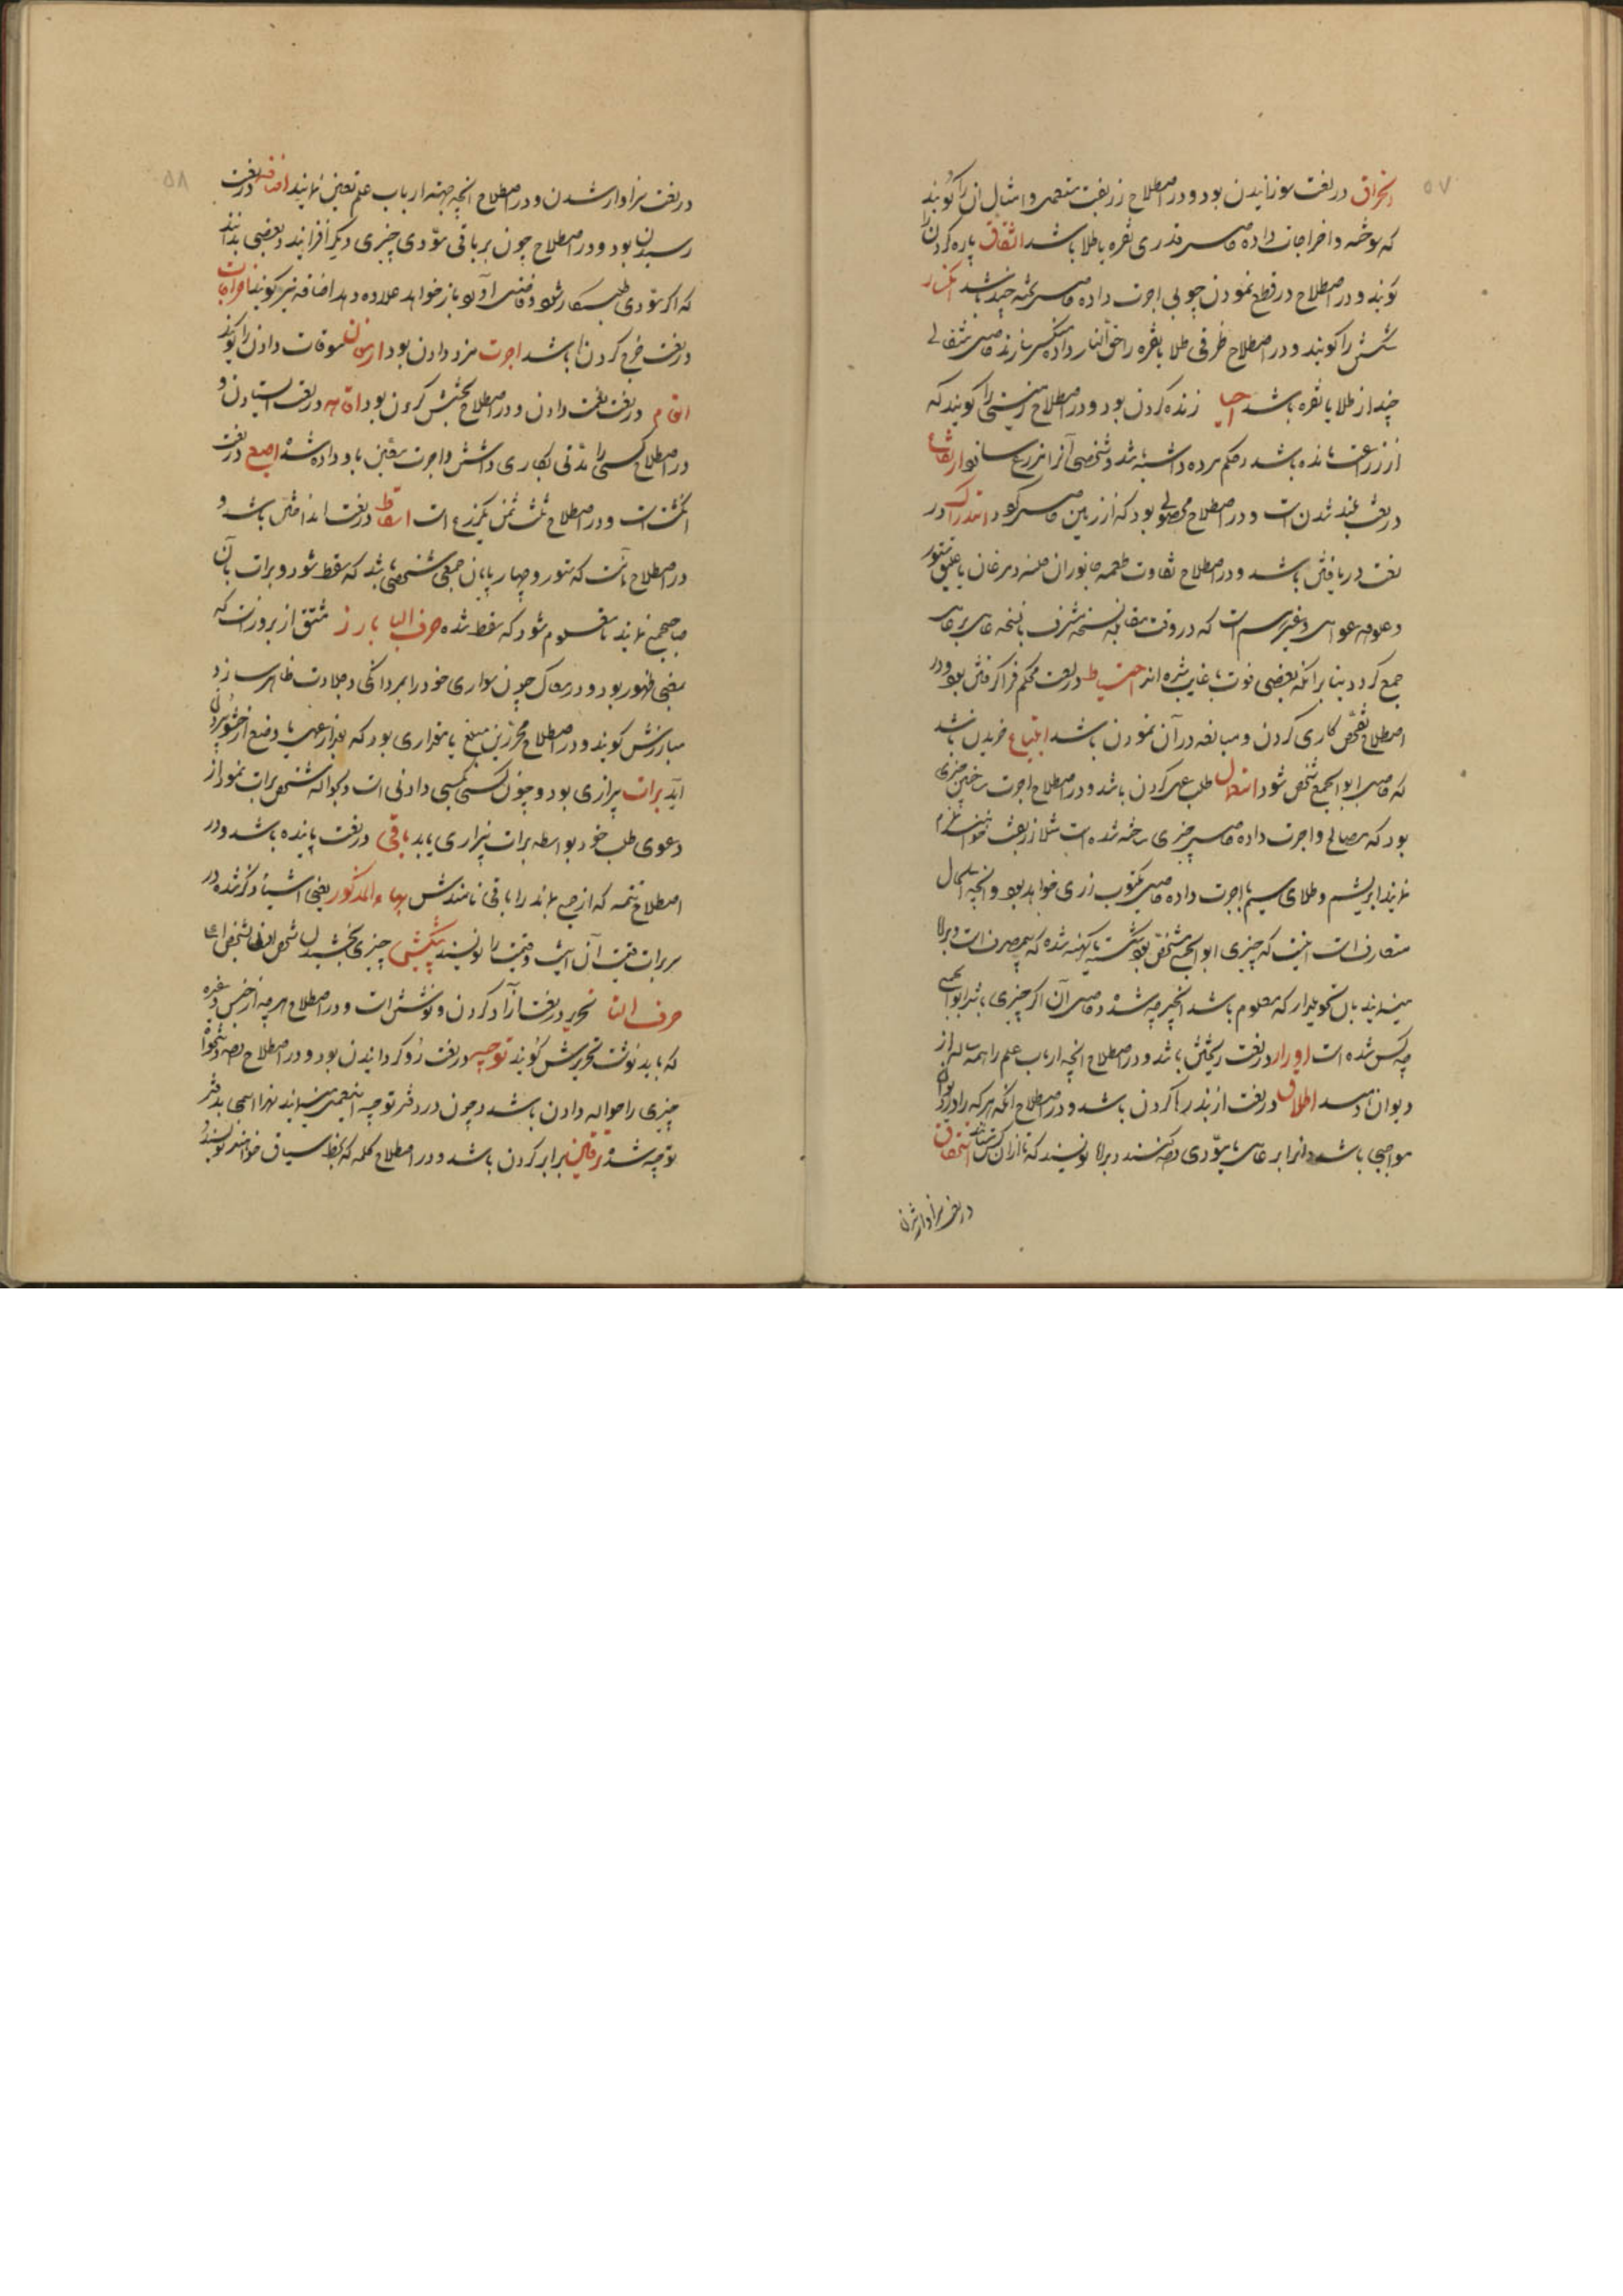 ۵۷
احراق در لغت سوزانیدن بود و در اصطلاح زربفت متعمی و امثال آن را گویند
که سوخته و اخراجات داده حاصل قدری نقره یا طلا باشد انشقاق پاره کردن را
گویند و در اصطلاح در قطع نمودن چوبی اجرت داده حاصل تخته چند باشد انکسار
شکستن را گویند و در اصطلاح ظرفی طلا یا نقره را حق النار داده منکسر سازند حاصل مثقالی
چند از طلا یا نقره باشد احیا زنده کردن بود و در اصطلاح زمینی را گویند که
از زراعت مانده باشد و حکم مرده داشته باشد و شخصی آنرا مزروع سازد ارتفاع
در لغت بلند شدن است و در اصطلاح محصولی بود که از زمین حاصل گردد استدراک در
لغت دریافتن باشد و در اصطلاح تفاوت طعمه جانوران و مرغان یا علیق ستور
و علوفه عوامل و غیر هم است که در وقت مقابله نسخه مشرف با نسخه عامل بر عامل
جمع گردد بنا بر آنکه بعضی فوت یا غایب شده اند احتیاط در لغت محکم فراگرفتن بود و در
اصطلاح تفحص کاری کردن و مبالغه در آن نمودن باشد ابتیاع خریدن باشد
که حاصل ابواب الجمع شخص شود استعمال طلب عمل کردن باشد و در اصطلاح اجرت ساختن چیزی
بود که مصالح و اجرت داده حاصل چیزی ساخته شده است مثلا زربفت
نمایند ابریشم و طلا و سیم با اجرت داده حاصل زری خواهد بود و آنچه الحال
متعارف است اینست که چیزی ابواب الجمع شخص بود شکسته یا کهنه شده که بی مصرف است و برلا
مینمایند بال تحویلدار که معلوم باشد آنچه چه شده و حاصل آن اگر چیزی باشد ابواب الجمع
چه کس شده است ادرار در لغت ریختن باشد و در اصطلاح آنچه ارباب علم را همه ساله از
دیوان رسد اطلاق در لغت از بند رها کردن باشد و در اصطلاح آنکه هر که را در دیوان
مواجبی باشد و آنرا بر عامل یا مؤدی حصه کنند و برلا نویسند که تا از آن کس ستاند استحقاق
در لغت سزاوار شدن
۵۸
در لغت سزاوار شدن و در اصطلاح آنچه جهة ارباب علم تعیین نمایند اضافه در لغت
رسیدن بود و در اصطلاح چون بر باقی مؤدی چیزی دیگر افزایند و بعضی بدانند
که اگر مؤدی طلبکار شود و فاضلی او را باز خواهد علاوه دهد اضافه نیز گویند اخراجات
در لغت خرج کردن باشد اجرت مزد دادن بود ارمغان سوقات دادن را گویند
انعام در لغت نعمت دادن و در اصطلاح بخشش کردن بود اقامه در لغت ایستادن و
در اصطلاح کسی را مدتی بکاری داشتن و اجرت معین باو داده شده اصبع در لغت
انگشت است و در اصطلاح ثلث ثمن یکذرع است اسقاط در لغت انداختن باشد و
در اصطلاح آنست که ستور و چهارپایان جمعی شخصی باشد که سقط شود و برات بآن
صاحب جمع نمایند تا معلوم شود که سقط شده حرف البا بارز مشتق از بروز است که
بمعنی ظهور بود و در معارک چون سواری خود را بمردانگی و جلادت ظاهر سازد
مبارزش گویند و در اصطلاح محررین مبلغ یا مقداری بود که بعد از عمل یا وضع از حشو بیرون
آید برات بیزاری بود و چون کسی بکسی دادنی است و بحواله شخصی برات نمود از
دعوی طلب خود بواسطه برات بیزاری یابد باقی در لغت پاینده باشد و در
اصطلاح تتمه که از جمع بماند را باقی نامندش بهاء المذکور یعنی اشیاء ذکر شده در
برات قیمت آن است و قیمت را نویسند پیشکش چیزی بخشیدن شخص ادنی شخص اعلا
حرف التا تحریر در لغت آزاد کردن و نوشتن است و در اصطلاح هرچه از جنس و غیره
که باید نوشت تحریرش گویند توجیه در لغت رو گردانیدن بود و در اصطلاح حصه و تنخواه
چیزی را حواله دادن باشد و چون در دفتر توجیه اینعمل مینمایند لهذا اسمی بدفتر
توجیه شده ترقین برابر کردن باشد و در اصطلاح کلمه که بخط سیاق نویسند و